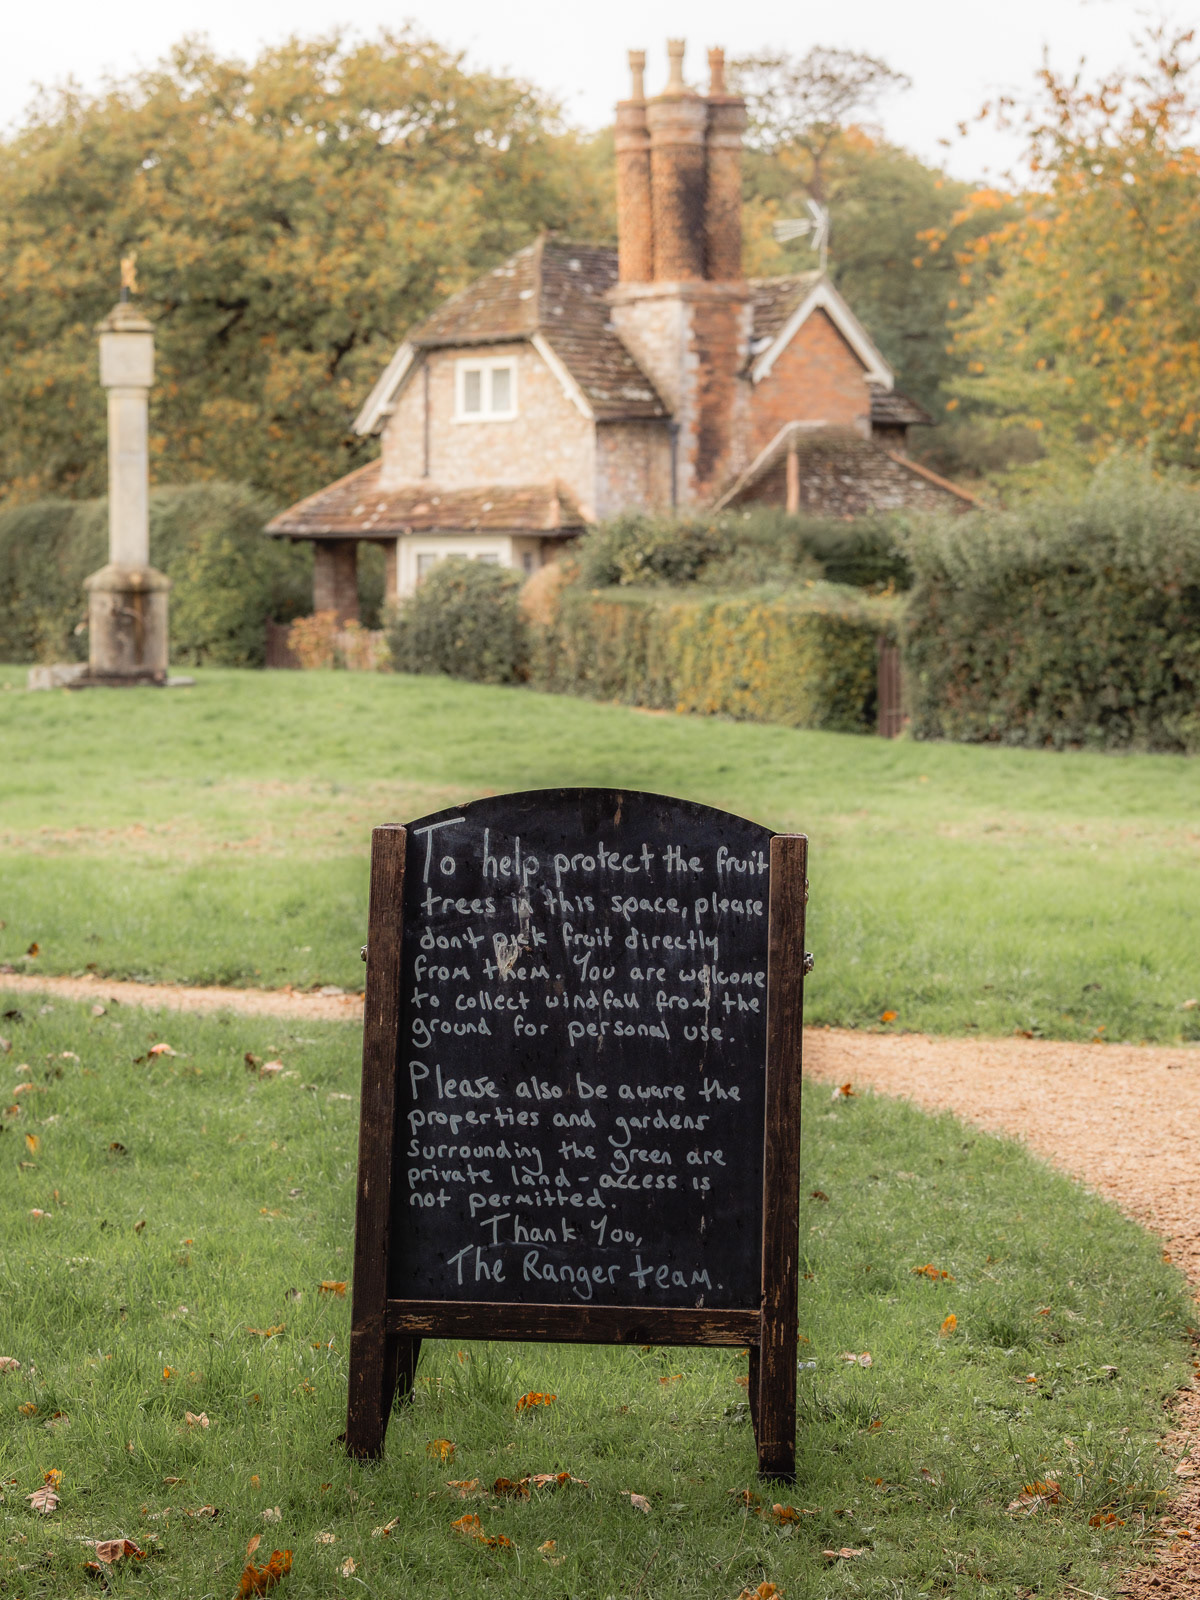 To help protect the fruit
trees in this space, please
don't pick fruit directly
from them. You are welcome
to collect windfall from the
ground for personal use.
Please also be aware the
properties and gardens
surrounding the green are
private land - access is
not permitted.
Thank You,
The Ranger team.